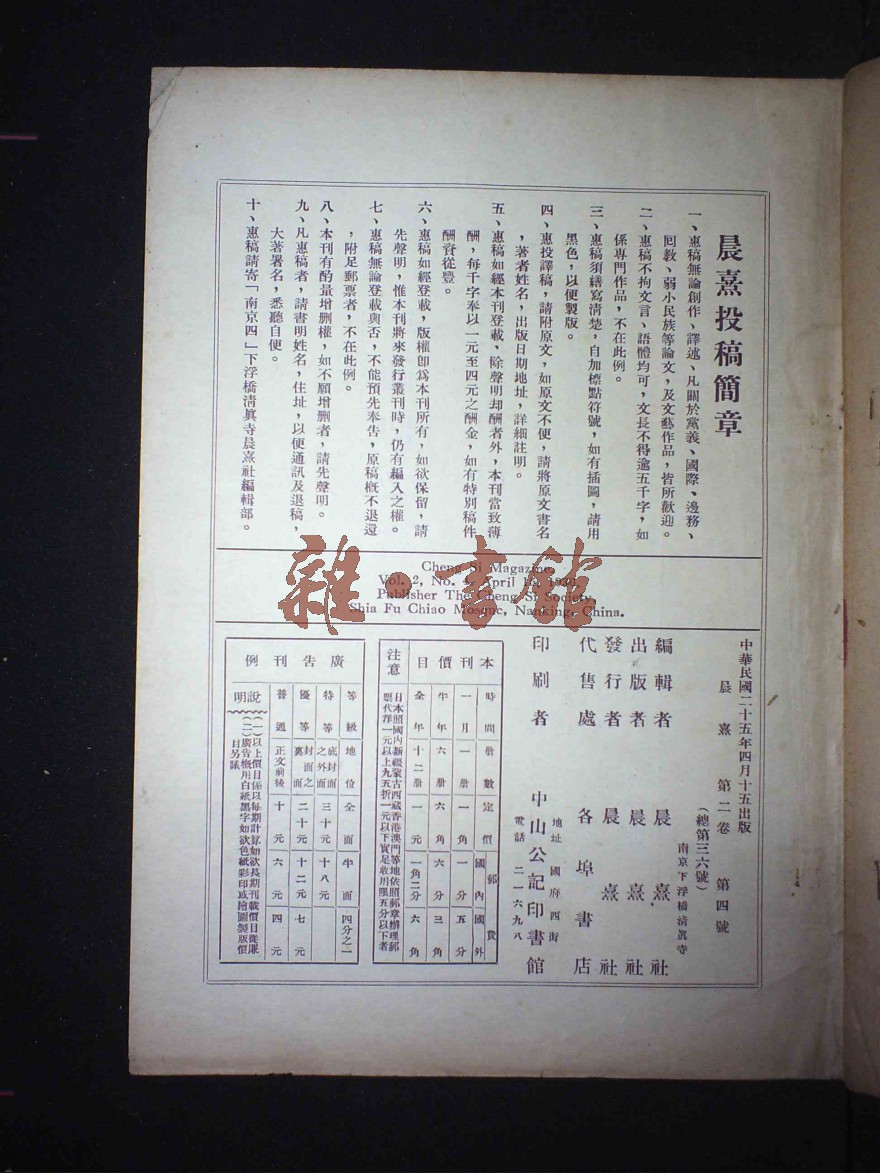 晨熹投稿簡章
一、惠稿無論創作、譯述、凡關於黨義、國際、邊務、
回教、弱小民族等論文，及文藝作品，皆所歡迎。
二、惠稿不拘文言、語體均可，文長不得逾五千字，如
係專門作品，不在此例。
三、惠稿須繕寫清楚，自加標點符號，如有插圖，請用
黑色，以便製版。
四、惠投譯稿，請附原文，如原文不便，請將原文書名
，著者姓名，出版日期地址，詳細註明。
五、惠稿如經本刊登載、除聲明却酬者外，本刊當致薄
酬，每千字奉以一元至四元之酬金，如有特別稿件
酬資從豐。
六、惠稿如經登載，版權卽爲本刊所有，如欲保留，請
先聲明，惟本刊將來發行叢刊時，仍有編入之權。
七、惠稿無論登載與否，不能預先奉告，原稿概不退還
，附足郵票者，不在此例。
八、本刊有酌量增删權，如不願增删者，請先聲明。
九、凡惠稿者，請書明姓名，住址，以便通訊及退稿，
大著署名，悉聽自便。
十、惠稿請寄「南京四」下浮橋清眞寺晨熹社編輯部。
Cheng Si Magazine,
Vol. 2, No. 4, April 15, 1936
Publisher The Cheng Si Society
Shia Fu Chiao Mosque, Nanking, China.
雜·书館
中華民國二十五年四月十五出版
晨熹 第二卷 第四號
（總第三六號）
南京下浮橋清眞寺
編輯者 晨熹社
出版者 晨熹社
發行者 晨熹社
代售處 各埠書店
地址 國府西街
印刷者 中山公記印書館
電話 二一六九八
本刊價目
時間 册數 定價 郵費 國內 國外
一月 一册 一角 一分 五分
半年 六册 六角 六分 三角
全年 十二册 一元 一角二分 六角
注意
日本照國內新疆蒙古西藏香港澳門等地依照郵章辦理郵
票代洋一元以上九五折一元以下實足收用限五分以下者
廣告刊例
等級 地位 全面 半面 四分之一
特等 底封面之外面 三十元 十八元
優等 封面之裏面 二十元 十二元 七元
普通 正文前後 十元 六元 四元
說明
（一）以上價目係以每期計算如欲長期刊載價目從廉
（二）廣告概用白紙黑字如欲色紙彩印或繪圖製版價
目另議